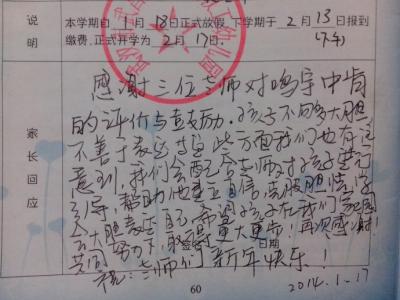 说明
本学期自 1 月 18 日正式放假，下学期于 2 月 13 日报到
缴费，正式开学为 2 月 17 日。
家长回应
感谢三位老师对鸣宇中肯
的评价与鼓励。孩子不够大胆，
不善于表达
这些方面我们也有注
意到，我们会配合老师对孩子进行
引导，帮助他建立自信，克服胆怯，学
会大胆表达自己，希望孩子在我们
共同努力下，取得更大更步！再次感谢！
日期
祝：老师们新年快乐！
2014.1.17
60